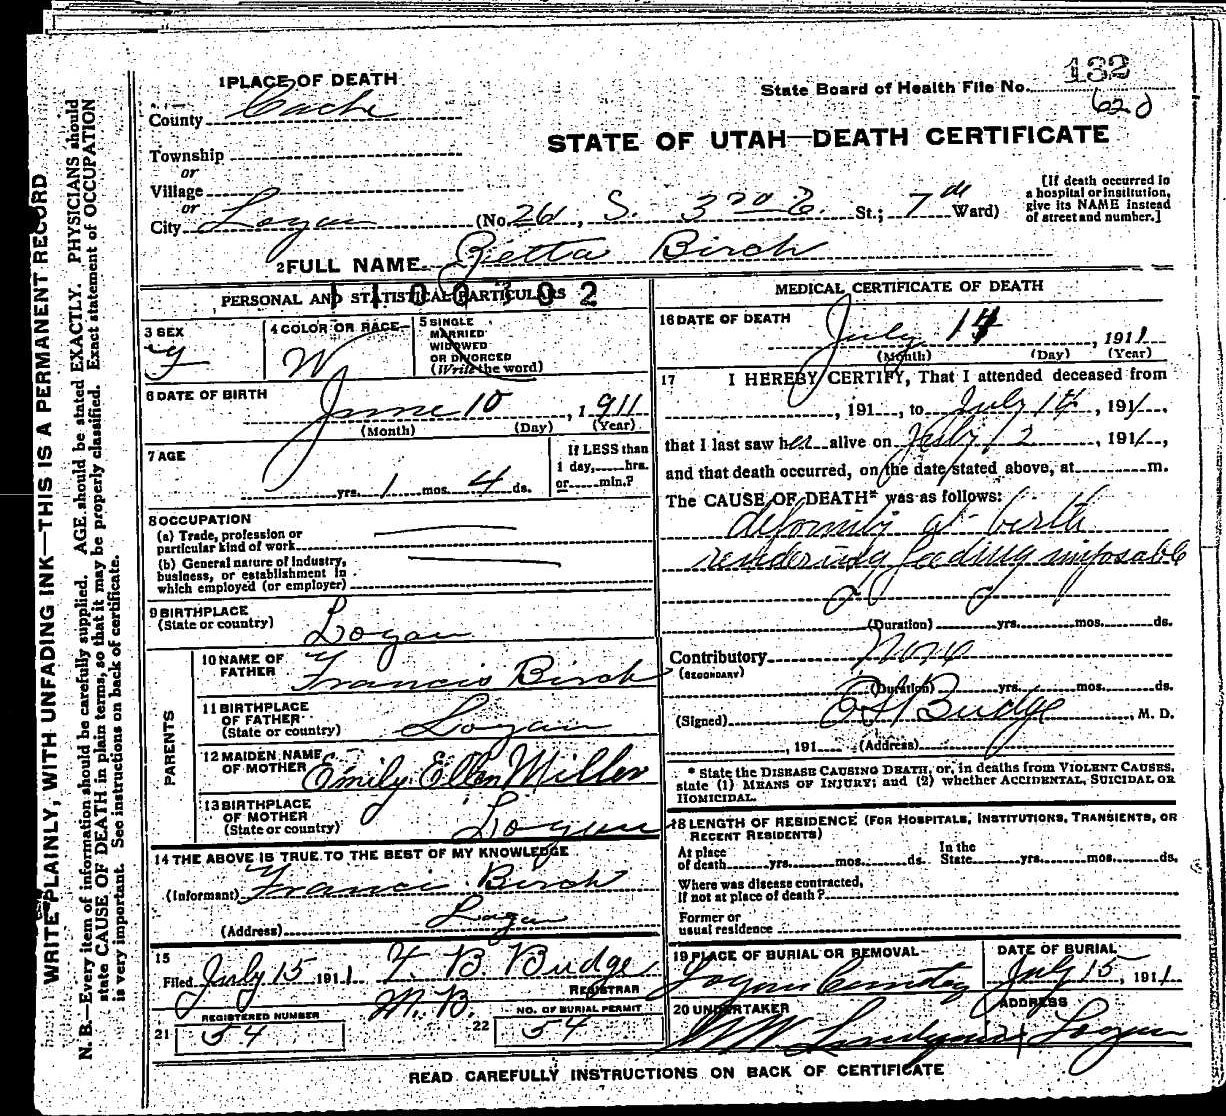 1 PLACE OF DEATH
County Cache
State Board of Health File No. 132
620
STATE OF UTAH—DEATH CERTIFICATE
Township
or
Village
or
City Logan (No. 261, S. 3rd E. St.; 7th Ward)
[If death occurred in
a hospital or institution,
give its NAME instead
of street and number.]
2 FULL NAME Zetta Birch
1100702
PERSONAL AND STATISTICAL PARTICULARS
3 SEX
F
4 COLOR OR RACE
W
5 SINGLE
MARRIED
WIDOWED
OR DIVORCED
(Write the word)
6 DATE OF BIRTH
June 10, 1911
(Month) (Day) (Year)
7 AGE
yrs. 1 mos. 4 ds.
If LESS than
1 day, hrs.
or min.?
8 OCCUPATION
(a) Trade, profession or
particular kind of work
(b) General nature of industry,
business, or establishment in
which employed (or employer)
9 BIRTHPLACE
(State or country)
Logan
PARENTS
10 NAME OF
FATHER Francis Birch
11 BIRTHPLACE
OF FATHER
(State or country) Logan
12 MAIDEN NAME
OF MOTHER Emily Ellen Miller
13 BIRTHPLACE
OF MOTHER
(State or country) Logan
14 THE ABOVE IS TRUE TO THE BEST OF MY KNOWLEDGE
(Informant) Francis Birch
(Address) Logan
15
Filed July 15 1911 F. B. Budge
REGISTRAR
M. B.
REGISTERED NUMBER
21 54
NO. OF BURIAL PERMIT
22 54
MEDICAL CERTIFICATE OF DEATH
16 DATE OF DEATH
July 14, 1911
(Month) (Day) (Year)
17 I HEREBY CERTIFY, That I attended deceased from
, 191 , to July 14, 1911,
that I last saw her alive on July 12, 1911,
and that death occurred, on the date stated above, at m.
The CAUSE OF DEATH* was as follows:
deformity at birth
rendering feeding imposable
(Duration) yrs. mos. ds.
Contributory None
(SECONDARY)
(Duration) yrs. mos. ds.
(Signed) Budge, M. D.
, 191 (Address)
* State the DISEASE CAUSING DEATH, or, in deaths from VIOLENT CAUSES,
state (1) MEANS OF INJURY; and (2) whether ACCIDENTAL, SUICIDAL OR
HOMICIDAL.
18 LENGTH OF RESIDENCE (FOR HOSPITALS, INSTITUTIONS, TRANSIENTS, OR
RECENT RESIDENTS)
At place
of death yrs. mos. ds.
In the
State yrs. mos. ds.
Where was disease contracted,
if not at place of death?
Former or
usual residence
19 PLACE OF BURIAL OR REMOVAL
Logan
DATE OF BURIAL
July 15, 1911
20 UNDERTAKER
ADDRESS
Logan
READ CAREFULLY INSTRUCTIONS ON BACK OF CERTIFICATE
WRITE PLAINLY, WITH UNFADING INK—THIS IS A PERMANENT RECORD
N. B.—Every item of information should be carefully supplied. AGE should be stated EXACTLY. PHYSICIANS should
state CAUSE OF DEATH in plain terms, so that it may be properly classified. Exact statement of OCCUPATION
is very important. See instructions on back of certificate.